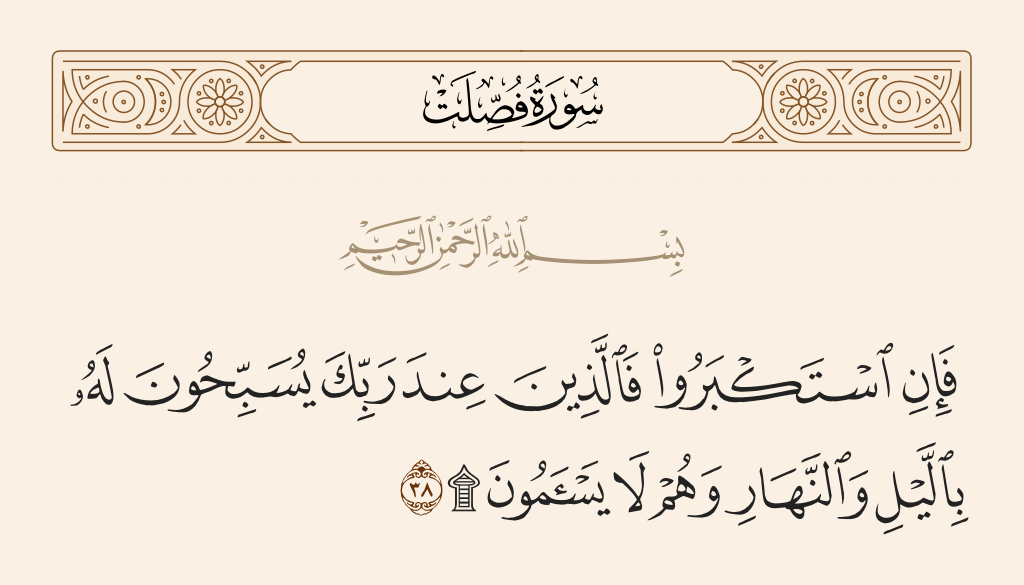 سُورَةُ فُصِّلَتْ
بِسْمِ ٱللَّهِ ٱلرَّحْمَٰنِ ٱلرَّحِيمِ
فَإِنِ ٱسْتَكْبَرُوا۟ فَٱلَّذِينَ عِندَ رَبِّكَ يُسَبِّحُونَ لَهُۥ
بِٱلَّيْلِ وَٱلنَّهَارِ وَهُمْ لَا يَسْـَٔمُونَ ۩ ٣٨